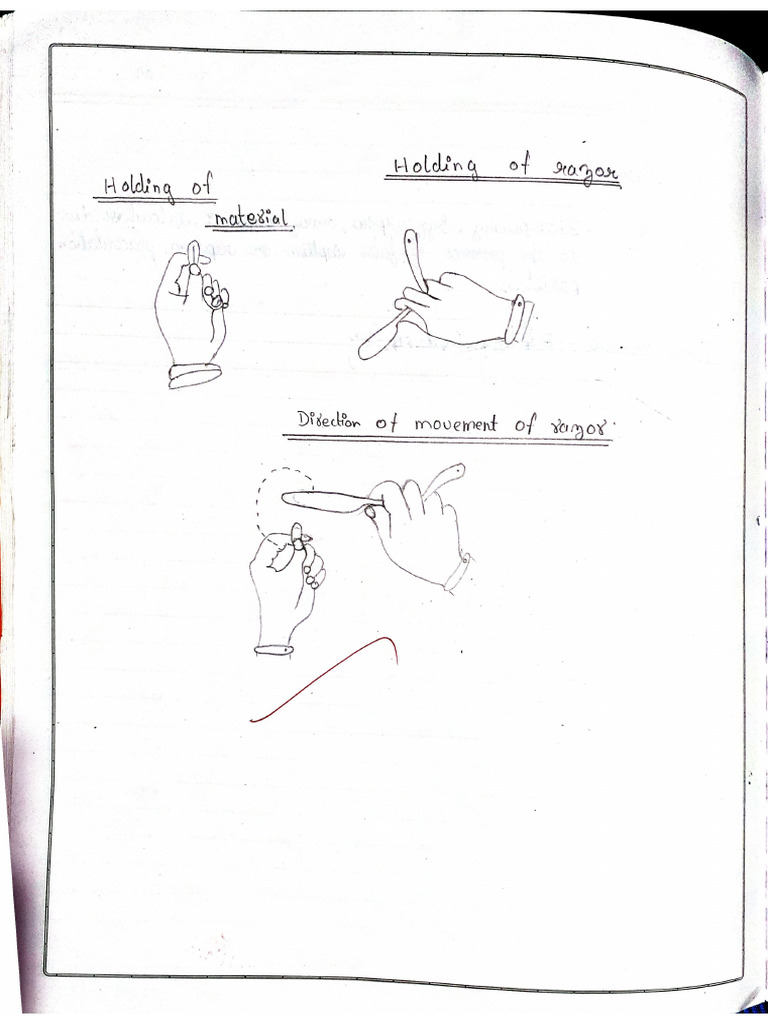 Holding of
material.
Holding of razor
Direction of movement of razor.